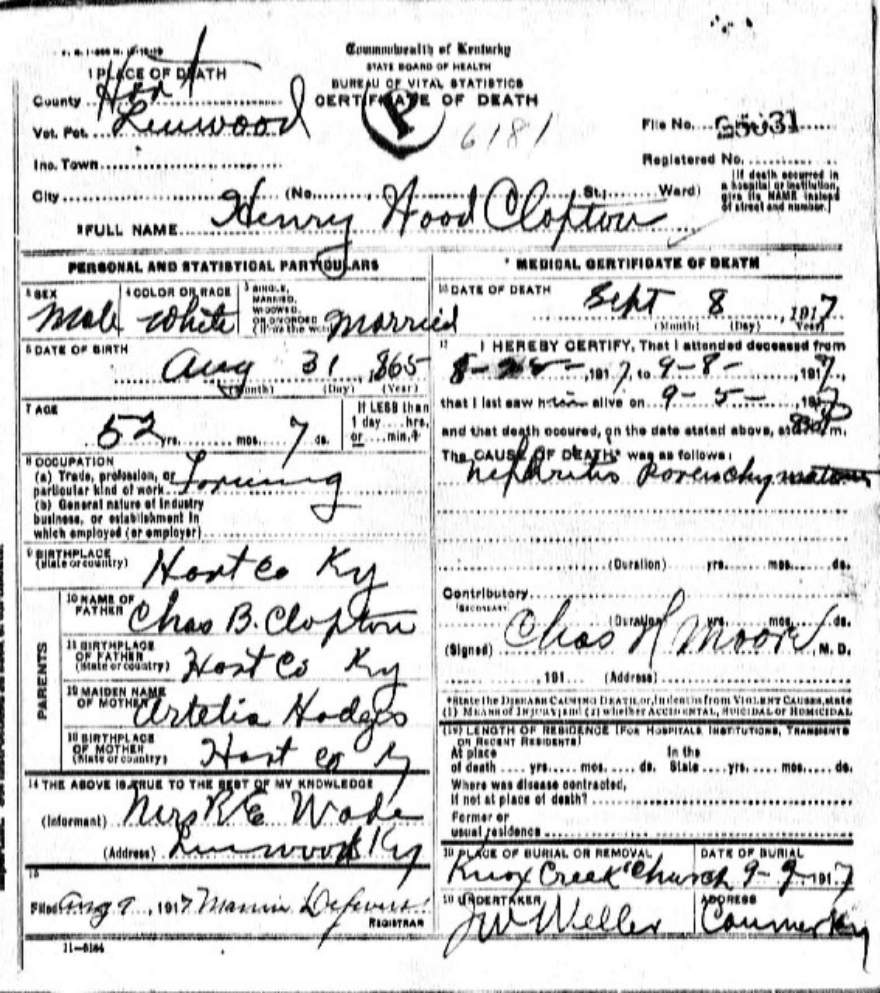 Commonwealth of Kentucky
STATE BOARD OF HEALTH
BUREAU OF VITAL STATISTICS
CERTIFICATE OF DEATH
1 PLACE OF DEATH
County Hart
Vot. Pct. Linwood
6181
File No.
Inc. Town
Registered No.
City (No. St.; Ward)
(If death occurred in a hospital or institution, give its NAME instead of street and number.)
FULL NAME Henry Wood Clopton
PERSONAL AND STATISTICAL PARTICULARS
SEX Male
4 COLOR OR RACE White
SINGLE, MARRIED, WIDOWED, OR DIVORCED (Write the word) Married
DATE OF BIRTH
Aug 31 , 1865
(Month) (Day) (Year)
7 AGE
52 yrs. mos. 7 ds.
If LESS than 1 day....hrs. or ....min.?
8 OCCUPATION
(a) Trade, profession, or
particular kind of work
(b) General nature of industry
business, or establishment in
which employed (or employer)
9 BIRTHPLACE
(State or country) Hart Co Ky
PARENTS
10 NAME OF FATHER Chas B. Clopton
11 BIRTHPLACE OF FATHER
(State or country) Hart Co Ky
12 MAIDEN NAME OF MOTHER Artelia Hodges
13 BIRTHPLACE OF MOTHER
(State or country) Hart Co Ky
14 THE ABOVE IS TRUE TO THE BEST OF MY KNOWLEDGE
(Informant) Mrs R E Wade
(Address) Linwood Ky
15
Filed Aug 9, 1917
REGISTRAR
11-5184
MEDICAL CERTIFICATE OF DEATH
16 DATE OF DEATH
Sept 8 , 1917
(Month) (Day) Year)
17 I HEREBY CERTIFY, That I attended deceased from
, 1917, to 9-8- , 1917,
that I last saw him alive on 9-5- 1917
and that death occured, on the date stated above, at m.
The CAUSE OF DEATH* was as follows:
Nephritis Parenchymatous
(Duration) yrs. mos. ds.
Contributory
(SECONDARY)
(Duration) yrs. mos. ds.
(Signed) Chas H Moore M. D.
, 191 (Address)
*State the DISEASE CAUSING DEATH, or, in deaths from VIOLENT CAUSES, state
(1) MEANS OF INJURY; and (2) whether ACCIDENTAL, SUICIDAL or HOMICIDAL
LENGTH OF RESIDENCE (FOR HOSPITALS INSTITUTIONS, TRANSIENTS
OR RECENT RESIDENTS)
At place In the
of death yrs. mos. ds. State yrs. mos. ds.
Where was disease contracted,
if not at place of death?
Former or
usual residence
19 PLACE OF BURIAL OR REMOVAL
Knox Creek Church
DATE OF BURIAL
9-9-1917
20 UNDERTAKER
J W Weller
ADDRESS
Canmer Ky